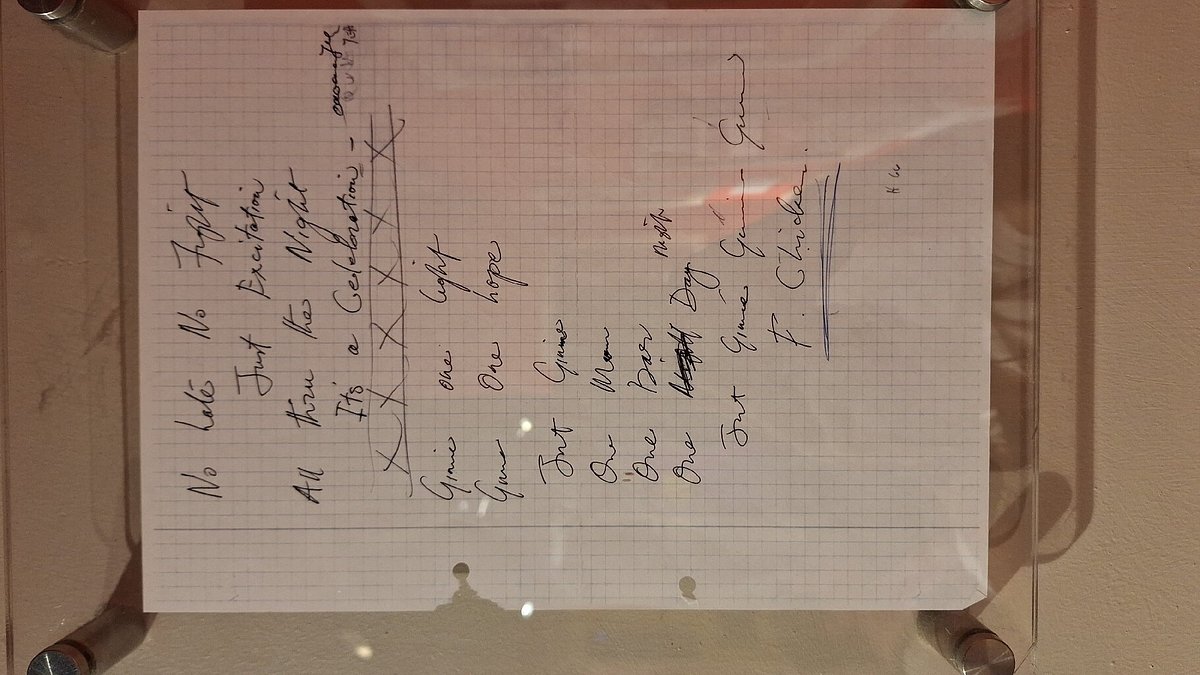 No hate No Fight
Just Excitation
All thru the Night
It's a Cedebration -
Gimie one light
Gimie One hope
Just Gimie
One Man
One Bar
One Day Night
Just Gimie Gimie Gimie
F. Chicken.